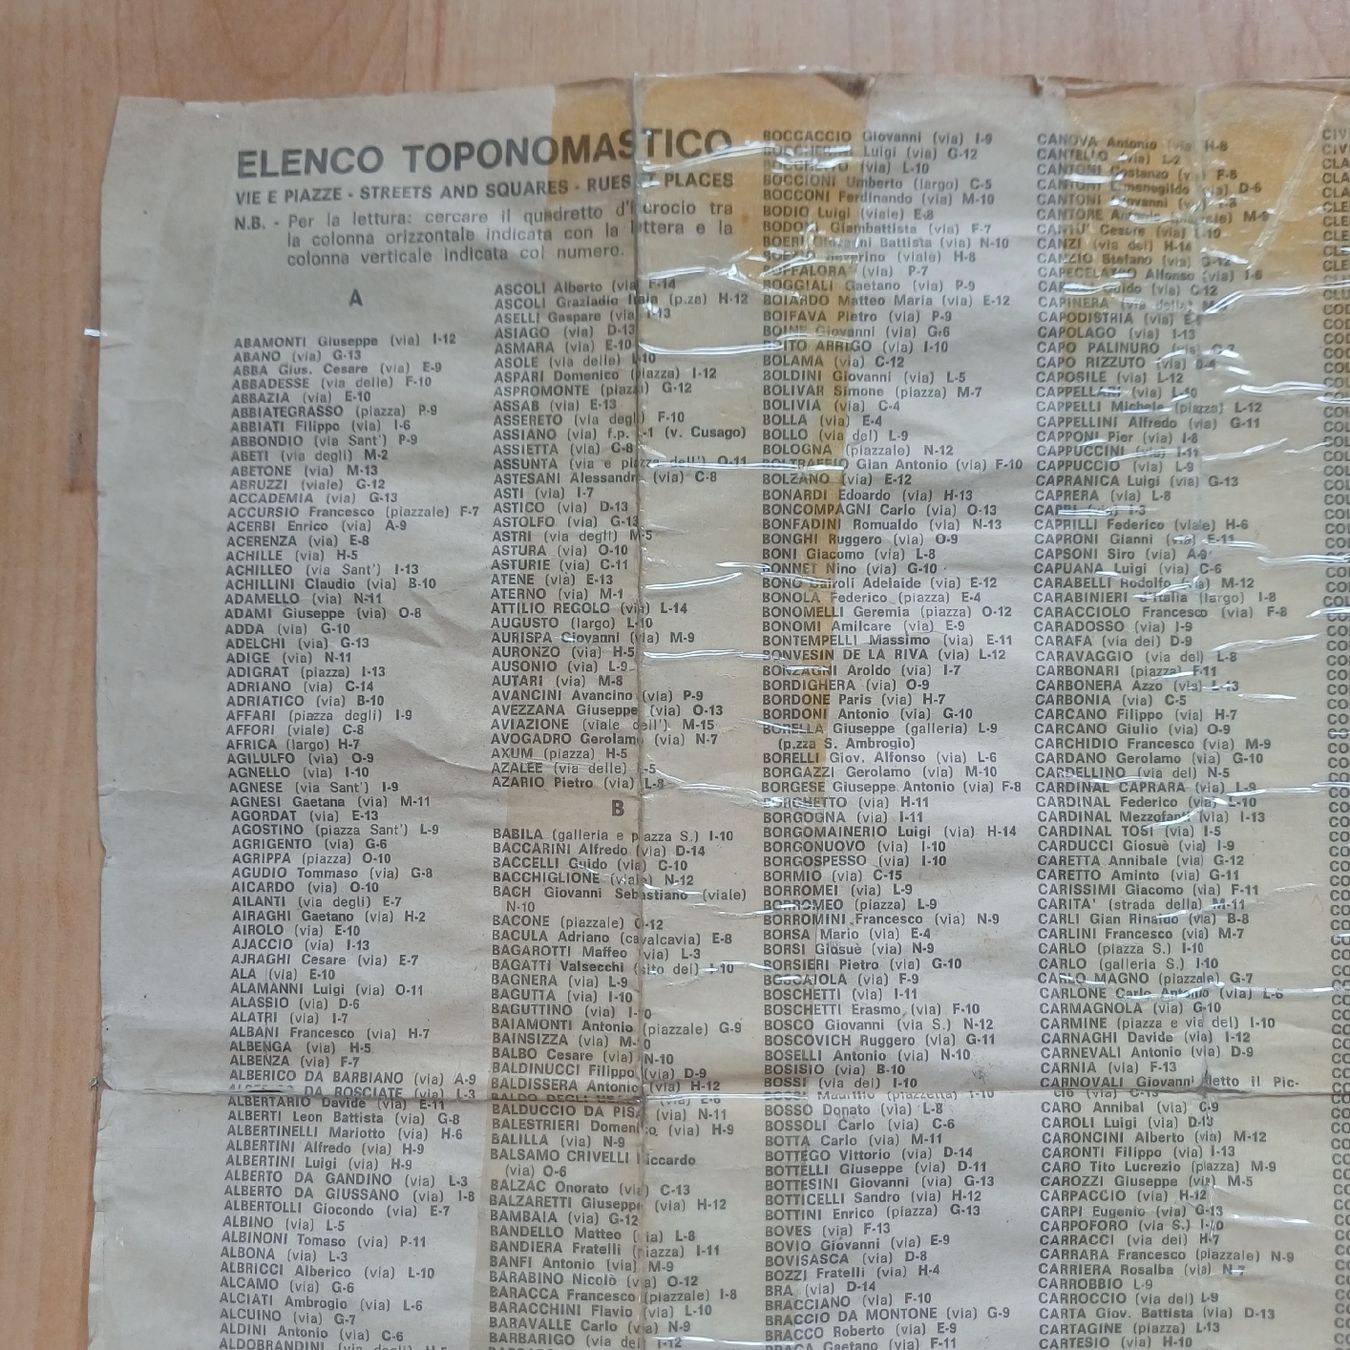 ELENCO TOPONOMASTICO
VIE E PIAZZE - STREETS AND SQUARES - RUES ET PLACES
N.B. - Per la lettura: cercare il quadretto d'incrocio tra
la colonna orizzontale indicata con la lettera e la
colonna verticale indicata col numero.
A
ABAMONTI Giuseppe (via) I-12
ABANO (via) G-13
ABBA Gius. Cesare (via) E-9
ABBADESSE (via delle) F-10
ABBAZIA (via) E-10
ABBIATEGRASSO (piazza) P-9
ABBIATI Filippo (via) I-6
ABBONDIO (via Sant') P-9
ABETI (via degli) M-2
ABETONE (via) M-13
ABRUZZI (viale) G-12
ACCADEMIA (via) G-13
ACCURSIO Francesco (piazzale) F-7
ACERBI Enrico (via) A-9
ACERENZA (via) E-8
ACHILLE (via) H-5
ACHILLEO (via Sant') I-13
ACHILLINI Claudio (via) B-10
ADAMELLO (via) N-11
ADAMI Giuseppe (via) O-8
ADDA (via) G-10
ADELCHI (via) G-13
ADIGE (via) N-11
ADIGRAT (piazza) I-13
ADRIANO (via) C-14
ADRIATICO (via) B-10
AFFARI (piazza degli) I-9
AFFORI (viale) C-8
AFRICA (largo) H-7
AGILULFO (via) O-9
AGNELLO (via) I-10
AGNESE (via Sant') I-9
AGNESI Gaetana (via) M-11
AGORDAT (via) E-13
AGOSTINO (piazza Sant') L-9
AGRIGENTO (via) G-6
AGRIPPA (piazza) O-10
AGUDIO Tommaso (via) G-8
AICARDO (via) O-10
AILANTI (via degli) E-7
AIRAGHI Gaetano (via) H-2
AIROLO (via) E-10
AJACCIO (via) I-13
AJRAGHI Cesare (via) E-7
ALA (via) E-10
ALAMANNI Luigi (via) O-11
ALASSIO (via) D-6
ALATRI (via) I-7
ALBANI Francesco (via) H-7
ALBENGA (via) H-5
ALBENZA (via) F-7
ALBERICO DA BARBIANO (via) A-9
DA ROSCIATE (via) L-3
ALBERTARIO Davide (via) E-11
ALBERTI Leon Battista (via) G-8
ALBERTINELLI Mariotto (via) H-6
ALBERTINI Alfredo (via) H-9
ALBERTINI Luigi (via) H-9
ALBERTO DA GANDINO (via) L-3
ALBERTO DA GIUSSANO (via) I-8
ALBERTOLLI Giocondo (via) E-7
ALBINO (via) L-5
ALBINONI Tomaso (via) P-11
ALBONA (via) L-3
ALBRICCI Alberico (via) L-10
ALCAMO (via) G-6
ALCIATI Ambrogio (via) L-6
ALCUINO (via) G-7
ALDINI Antonio (via) C-6
ALDOBRANDINI (via degli) H-5
ASCOLI Alberto (via) F-14
ASCOLI Graziadio Isaia (p.za) H-12
ASELLI Gaspare (via) I-13
ASIAGO (via) D-13
ASMARA (via) E-10
ASOLE (via delle) L-10
ASPARI Domenico (piazza) I-12
ASPROMONTE (piazza) G-12
ASSAB (via) E-13
ASSERETO (via degli) F-10
ASSIANO (via) f.p. -1 (v. Cusago)
ASSIETTA (via) C-8
ASSUNTA (via e piazza dell') O-11
ASTESANI Alessandro (via) C-8
ASTI (via) I-7
ASTICO (via) D-13
ASTOLFO (via) G-13
ASTRI (via degli) M-5
ASTURA (via) O-10
ASTURIE (via) C-11
ATENE (via) E-13
ATERNO (via) M-1
ATTILIO REGOLO (via) L-14
AUGUSTO (largo) L-10
AURISPA Giovanni (via) M-9
AURONZO (via) H-5
AUSONIO (via) L-9
AUTARI (via) M-8
AVANCINI Avancino (via) P-9
AVEZZANA Giuseppe (via) O-13
AVIAZIONE (viale dell') M-15
AVOGADRO Gerolamo (via) N-7
AXUM (piazza) H-5
AZALEE (via delle) -5
AZARIO Pietro (via) L-8
B
BABILA (galleria e piazza S.) I-10
BACCARINI Alfredo (via) D-14
BACCELLI Guido (via) C-10
BACCHIGLIONE (viale) N-12
BACH Giovanni Sebastiano (viale)
N-10
BACONE (piazzale) G-12
BACULA Adriano (cavalcavia) E-8
BAGAROTTI Maffeo (via) L-3
BAGATTI Valsecchi (sito dei) I-10
BAGNERA (via) L-9
BAGUTTA (via) I-10
BAGUTTINO (via) I-10
BAIAMONTI Antonio (piazzale) G-9
BAINSIZZA (via) M-10
BALBO Cesare (via) N-10
BALDINUCCI Filippo (via) D-9
BALDISSERA Antonio (via) H-12
BALDO DEGLI (via) E-6
BALDUCCIO DA PISA (via) N-11
BALESTRIERI Domenico (via) H-9
BALILLA (via) N-9
BALSAMO CRIVELLI Riccardo
(via) O-6
BALZAC Onorato (via) C-13
BALZARETTI Giuseppe (via) H-12
BAMBAIA (via) G-12
BANDELLO Matteo (via) L-8
BANDIERA Fratelli (piazza) I-11
BANFI Antonio (via) M-9
BARABINO Nicolò (via) O-12
BARACCA Francesco (piazzale) I-8
BARACCHINI Flavio (via) L-10
BARAVALLE Carlo (via) N-9
BARBARIGO (via dei) I-12
BOCCACCIO Giovanni (via) I-9
BOCCHERINI Luigi (via) G-12
BOCCHETTO (via) L-10
BOCCIONI Umberto (largo) C-5
BOCCONI Ferdinando (via) M-10
BODIO Luigi (viale) E-8
BODONI Giambattista (via) F-7
BOERI Giovanni Battista (via) N-10
BOEZIO Severino (viale) H-8
BUFFALORA (via) P-7
BOGGIALI Gaetano (via) P-9
BOIARDO Matteo Maria (via) E-12
BOIFAVA Pietro (via) P-9
BOINE Giovanni (via) G-6
BOITO ARRIGO (via) I-10
BOLAMA (via) C-12
BOLDINI Giovanni (via) L-5
BOLIVAR Simone (piazza) M-7
BOLIVIA (via) C-4
BOLLA (via) E-4
BOLLO (via del) L-9
BOLOGNA (piazzale) N-12
BOLTRAFFIO Gian Antonio (via) F-10
BOLZANO (via) E-12
BONARDI Edoardo (via) H-13
BONCOMPAGNI Carlo (via) O-13
BONFADINI Romualdo (via) N-13
BONGHI Ruggero (via) O-9
BONI Giacomo (via) L-8
BONNET Nino (via) G-10
BONO Cairoli Adelaide (via) E-12
BONOLA Federico (piazza) E-4
BONOMELLI Geremia (piazza) O-12
BONOMI Amilcare (via) E-9
BONTEMPELLI Massimo (via) E-11
BONVESIN DE LA RIVA (via) L-12
BONZAGNI Aroldo (via) I-7
BORDIGHERA (via) O-9
BORDONE Paris (via) H-7
BORDONI Antonio (via) G-10
BORELLA Giuseppe (galleria) L-9
(p.zza S. Ambrogio)
BORELLI Giov. Alfonso (via) L-6
BORGAZZI Gerolamo (via) M-10
BORGESE Giuseppe Antonio (via) F-8
BORGHETTO (via) H-11
BORGOGNA (via) I-11
BORGOMAINERIO Luigi (via) H-14
BORGONUOVO (via) I-10
BORGOSPESSO (via) I-10
BORMIO (via) C-15
BORROMEI (via) L-9
BORROMEO (piazza) L-9
BORROMINI Francesco (via) N-9
BORSA Mario (via) E-4
BORSI Giosuè (via) N-9
BORSIERI Pietro (via) G-10
BOSCAIOLA (via) F-9
BOSCHETTI (via) I-11
BOSCHETTI Erasmo (via) F-10
BOSCO Giovanni (via S.) N-12
BOSCOVICH Ruggero (via) G-11
BOSELLI Antonio (via) N-10
BOSISIO (via) B-10
BOSSI (via dei) I-10
BOSSI Maurilio (piazzetta) I-10
BOSSO Donato (via) L-8
BOSSOLI Carlo (via) C-6
BOTTA Carlo (via) M-11
BOTTEGO Vittorio (via) D-14
BOTTELLI Giuseppe (via) D-11
BOTTESINI Giovanni (via) G-13
BOTTICELLI Sandro (via) H-12
BOTTINI Enrico (piazza) G-13
BOVES (via) F-13
BOVIO Giovanni (via) E-9
BOVISASCA (via) D-8
BOZZI Fratelli (via) H-4
BRA (via) D-14
BRACCIANO (via) F-10
BRACCIO DA MONTONE (via) G-9
BRACCO Roberto (via) E-9
BRAGA Gaetano (via) F-11
CANOVA Antonio (via) H-8
CANTELLO (via) L-2
CANTONI Costanzo (via) F-6
CANTONI Ermenegildo (via) D-6
CANTONI Giovanni (via) I-8
CANTORE Antonio (piazzale) M-9
CANTU' Cesare (via) I-10
CANZI (via dei) H-14
CANZIO Stefano (via) G-12
CAPECELATRO Alfonso (via) I-6
Guido (via) C-12
CAPINERA (via della) M-
CAPODISTRIA (via) E-
CAPOLAGO (via) I-13
CAPO PALINURO (via) -7
CAPO RIZZUTO (via)
CAPOSILE (via) L-12
CAPPELLARI (via) L-10
CAPPELLI Michele (piazza) L-12
CAPPELLINI Alfredo (via) G-11
CAPPONI Pier (via) I-8
CAPPUCCINI (via) I-11
CAPPUCCIO (via) L-9
CAPRANICA Luigi (via) G-13
CAPRERA (via) L-8
CAPRI (via) I-3
CAPRILLI Federico (viale) H-6
CAPRONI Gianni (via) E-11
CAPSONI Siro (via) A-9
CAPUANA Luigi (via) C-6
CARABELLI Rodolfo (via) M-12
CARABINIERI d'Italia (largo) I-8
CARACCIOLO Francesco (via) F-8
CARADOSSO (via) I-9
CARAFA (via dei) D-9
CARAVAGGIO (via del) L-8
CARBONARI (piazza) F-11
CARBONERA Azzo (via) L-13
CARBONIA (via) C-5
CARCANO Filippo (via) H-7
CARCANO Giulio (via) O-9
CARCHIDIO Francesco (via) M-9
CARDANO Gerolamo (via) G-10
CARDELLINO (via del) N-5
CARDINAL CAPRARA (via) L-9
CARDINAL Federico (via) L-10
CARDINAL Mezzofanti (via) I-13
CARDINAL TOSI (via) I-5
CARDUCCI Giosuè (via) I-9
CARETTA Annibale (via) G-12
CARETTO Aminto (via) G-11
CARISSIMI Giacomo (via) F-11
CARITA' (strada della) M-11
CARLI Gian Rinaldo (via) B-8
CARLINI Francesco (via) M-7
CARLO (piazza S.) I-10
CARLO (galleria S.) I-10
CARLO MAGNO (piazzale) G-7
CARLONE Carlo Antonio (via) L-6
CARMAGNOLA (via) G-10
CARMINE (piazza e via del) I-10
CARNAGHI Davide (via) I-12
CARNEVALI Antonio (via) D-9
CARNIA (via) F-13
CARNOVALI Giovanni detto il Pic-
cio (via) C-13
CARO Annibal (via) C-9
CAROLI Luigi (via) D-13
CARONCINI Alberto (via) M-12
CARONTI Filippo (via) I-13
CARO Tito Lucrezio (piazza) M-9
CAROZZI Giuseppe (via) M-5
CARPACCIO (via) H-12
CARPI Eugenio (via) G-13
CARPOFORO (via S.) I-10
CARRACCI (via dei) H-7
CARRARA Francesco (piazzale) N-9
CARRIERA Rosalba (via) N-7
CARROBBIO L-9
CARROCCIO (via del) L-9
CARTA Giov. Battista (via) D-13
CARTAGINE (piazza) L-13
CARTESIO (via) H-10